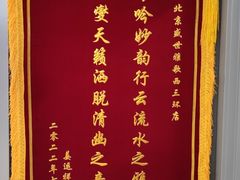 北京盛世雅歌西三环店
吟妙韵行云流水之雅
燮天籁洒脱清幽之音
姜运
二零二二年七